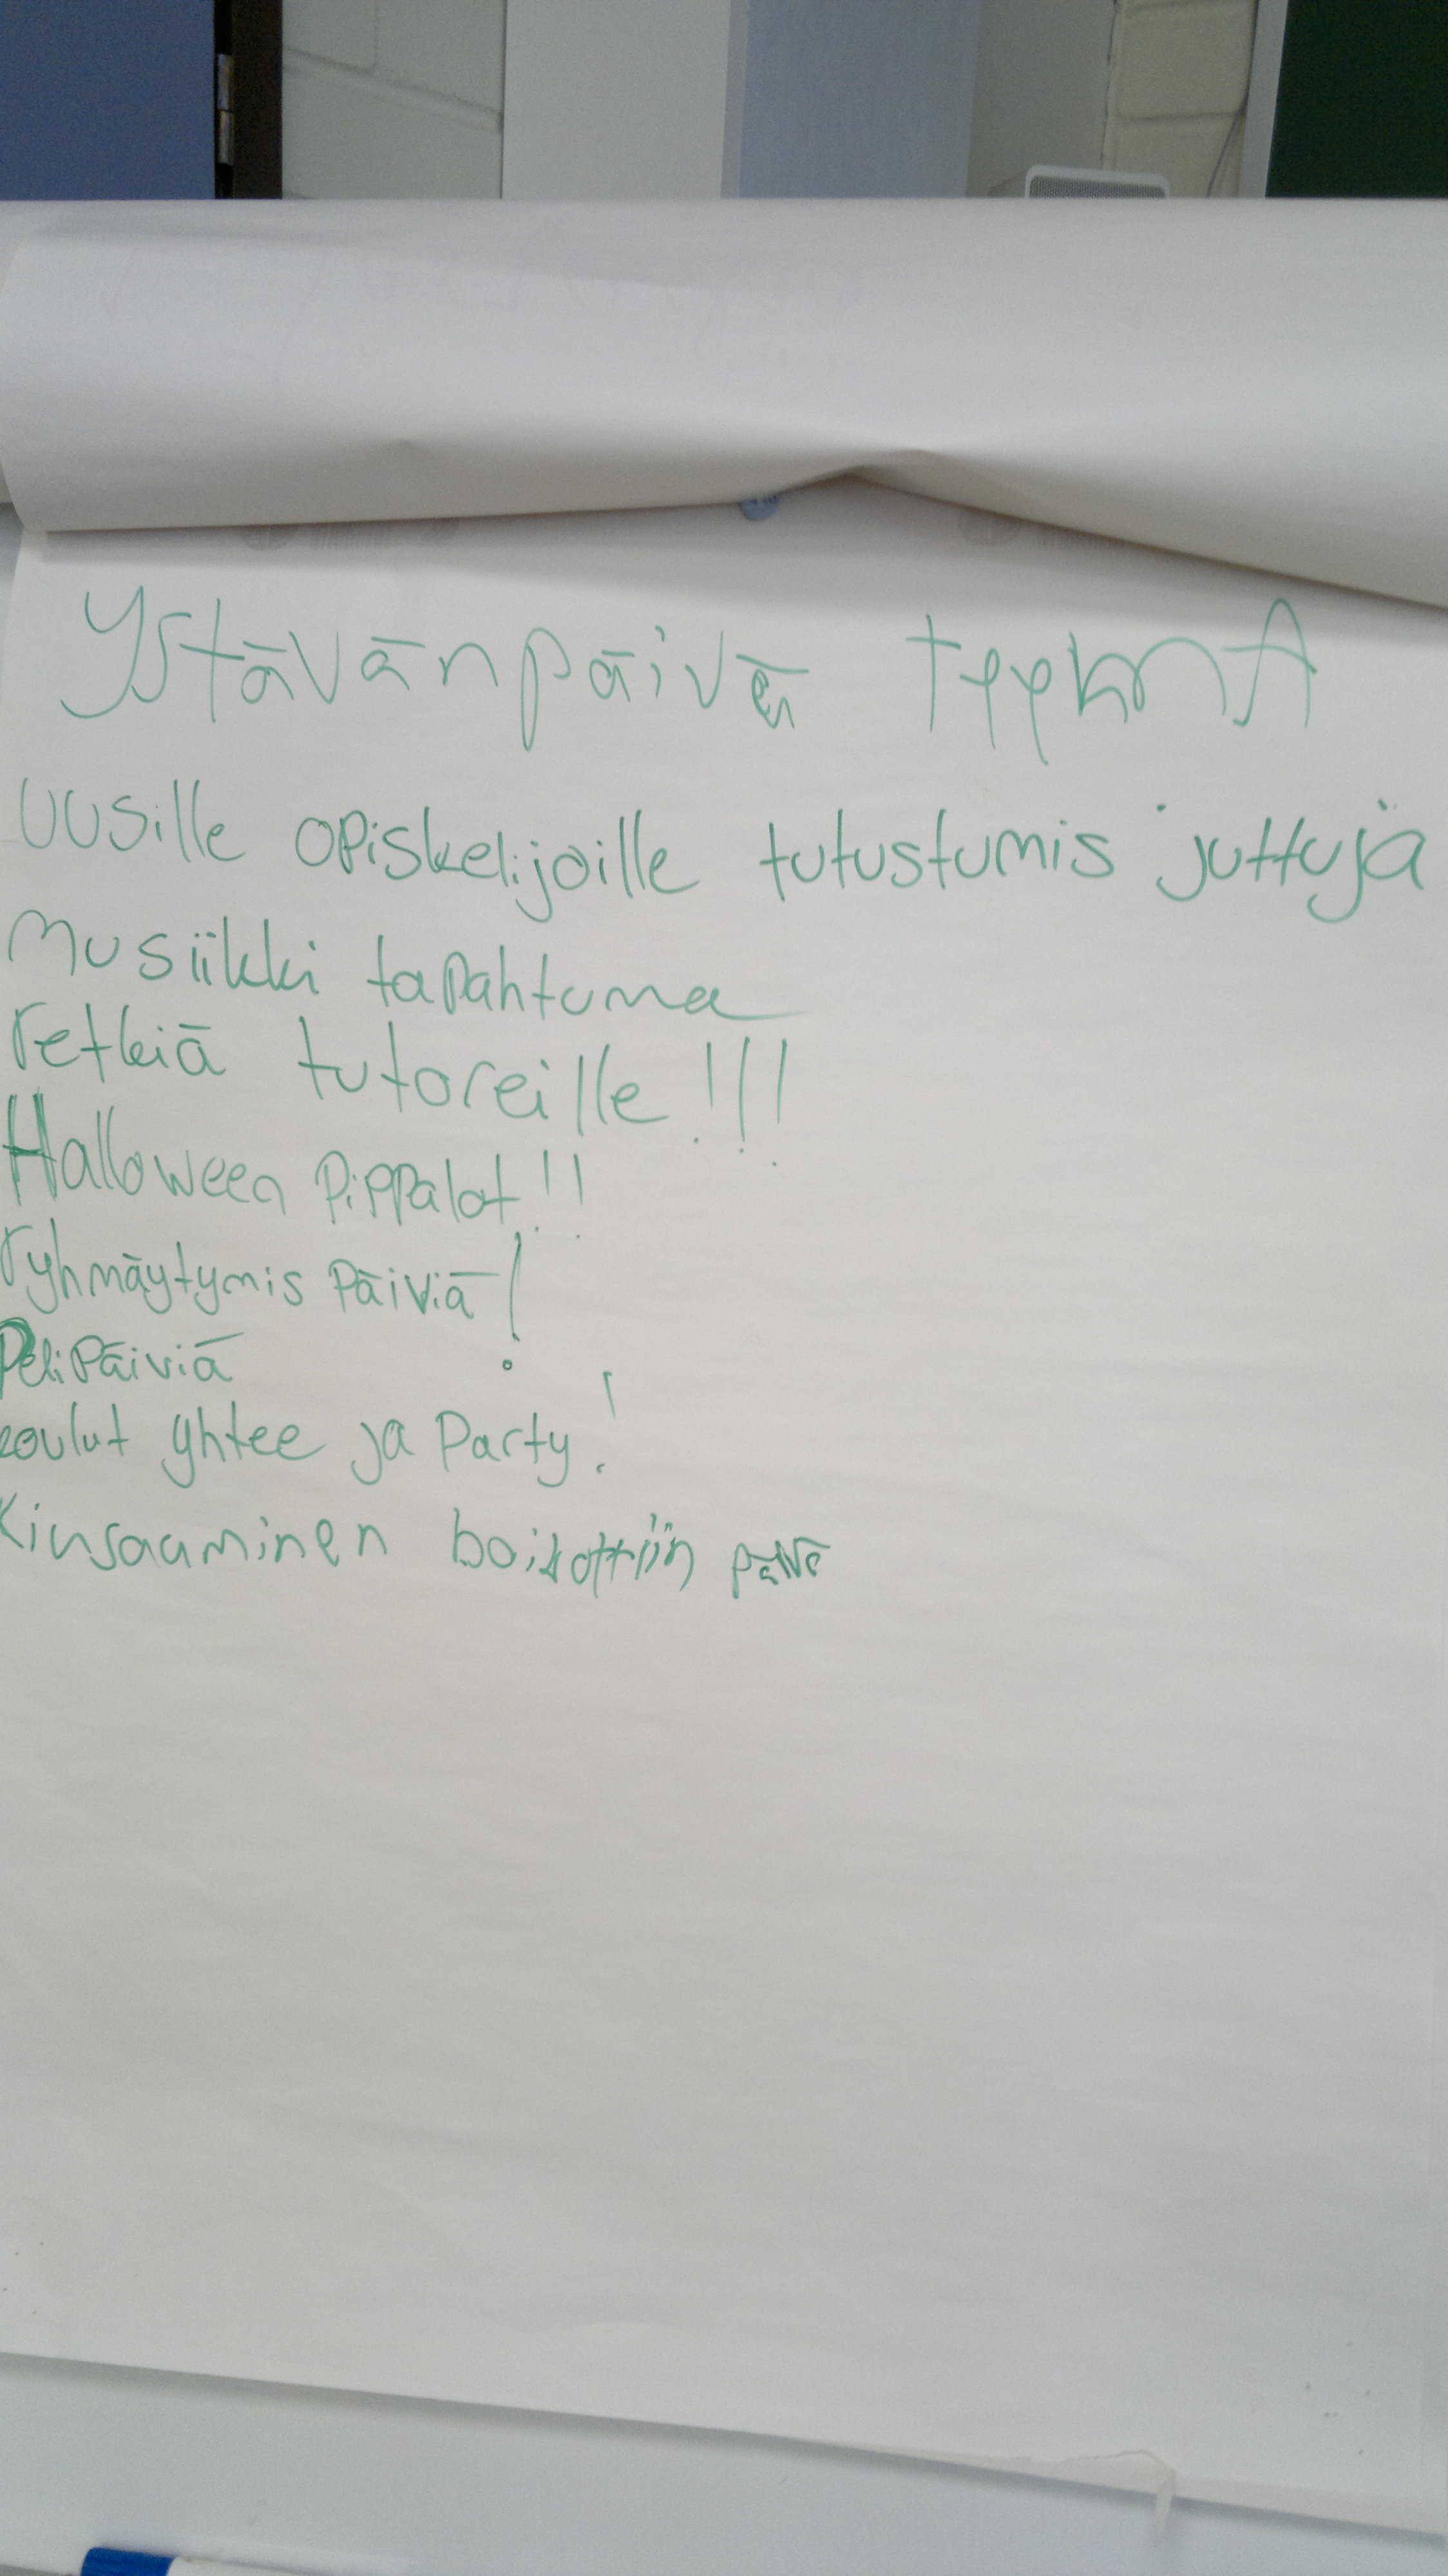 Ystävänpäivä
Uusille opiskelijoille tutustumis juttuja
Musiikki tapahtuma
retkiä tutoreille!!!
Halloween Pippalot!!
ryhmäytymis Päiviä!
PeliPäiviä
koulut yhtee ja Party!
Kiusaaminen boikottiin päivä